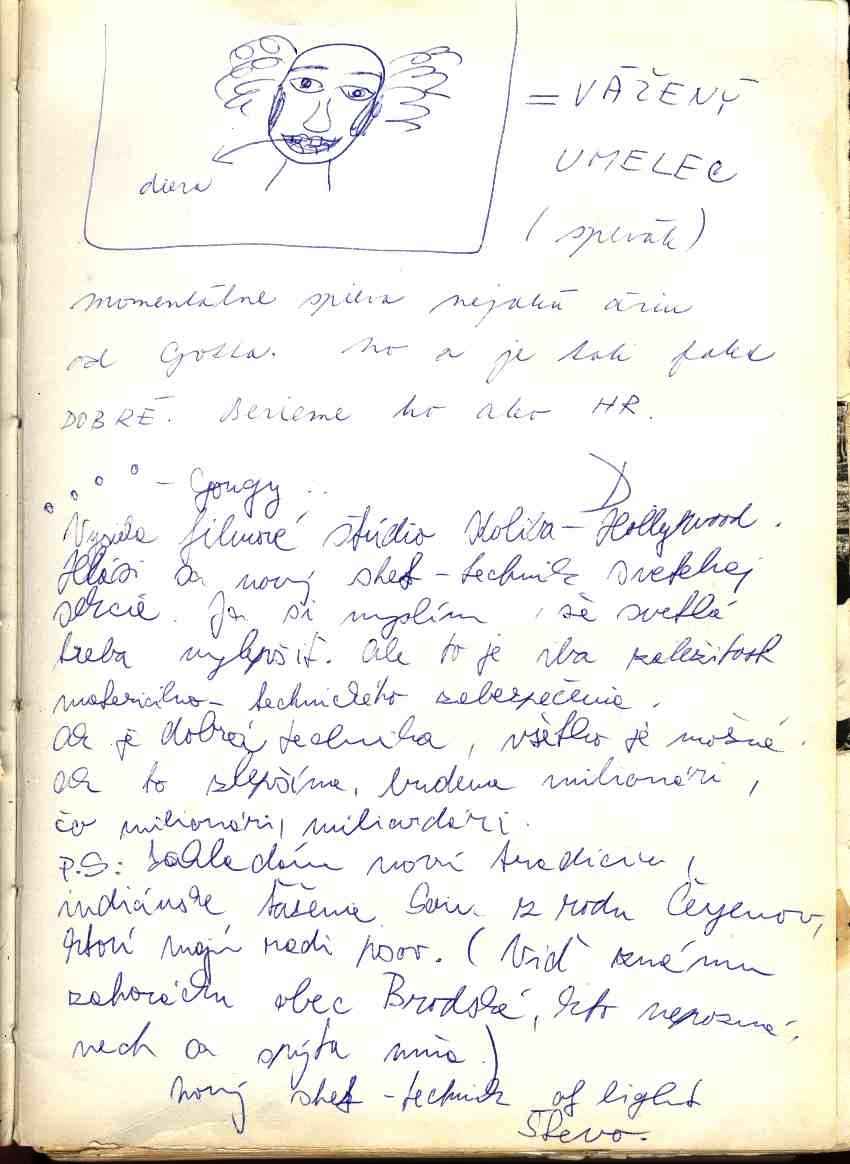 = VÁŽENÝ
UMELEC
diera
(spevák)
momentálne spieva nejakú áriu
od Gotta. No a je tak fakt
DOBRÉ. Berieme ho ako HR.
- Gongy ..
filmové štúdio Koliba - Hollywood.
Hlási sa nový shef-technik svetelnej
sekcie. Ja si myslím, že svetlá
treba vylepšiť. Ale to je iba záležitosť
materiálno-technického zabezpečenia.
Ak je dobrá technika, všetko je možné.
Ak to zlepšíme, budeme milionári,
čo milionári, miliardári.
P.S: Zakladám novú tradíciu,
indiánske Som z rodu Čejenov,
ktorí majú radi psov. (Viď známu
záhorácku obec Brodské, kto nepozná,
nech sa spýta mňa.)
Nový shef-technik of light
Števo.